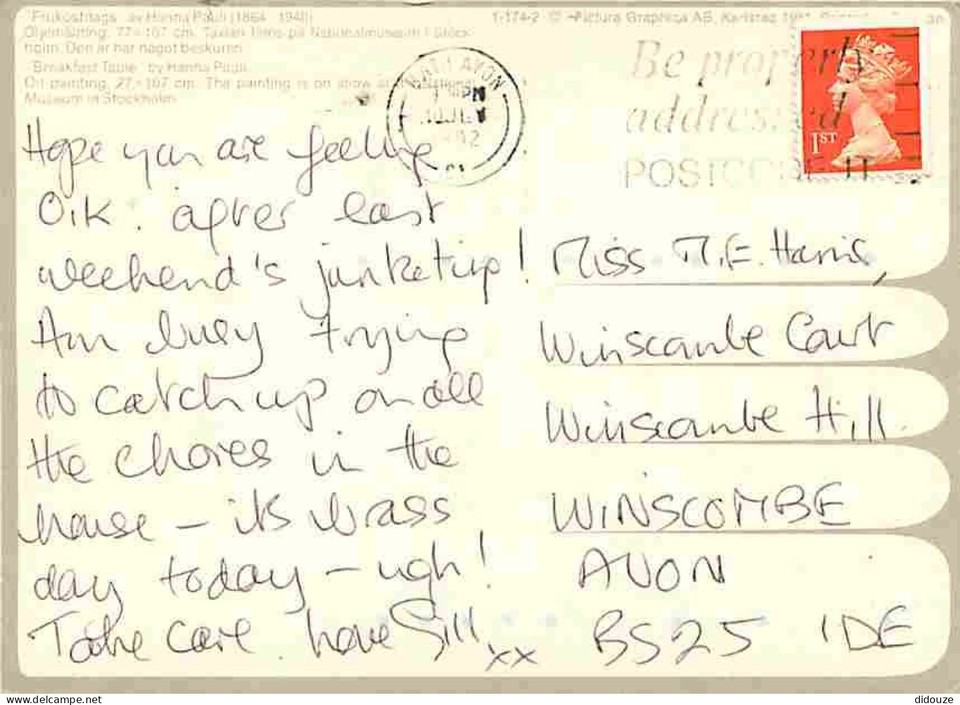 "Frukostdags" av Hanna Pauli (1864 - 1940)
Oljemålning, 77×107 cm. Tavlan finns på Nationalmuseum i Stock-
holm. Den är något beskuren.
"Breakfast Table" by Hanna Pauli
Oil painting, 27×107 cm. The painting is on show at
Museum in Stockholm
1-174-2 © Pictura Graphica AB, Karlstad
BATH AVON
PM
Be properly
addressed
POSTCODE IT
1ST
Hope you are feeling
O.K. after last
weekend's junketup!
Am busy trying
to catch up on all
the chores in the
house – its brass
day today – ugh!
Take care. love Gill xx
Miss M.E. Harris,
Winscombe Court
Winscombe Hill.
WINSCOMBE
AVON
BS25 1DE
didouze